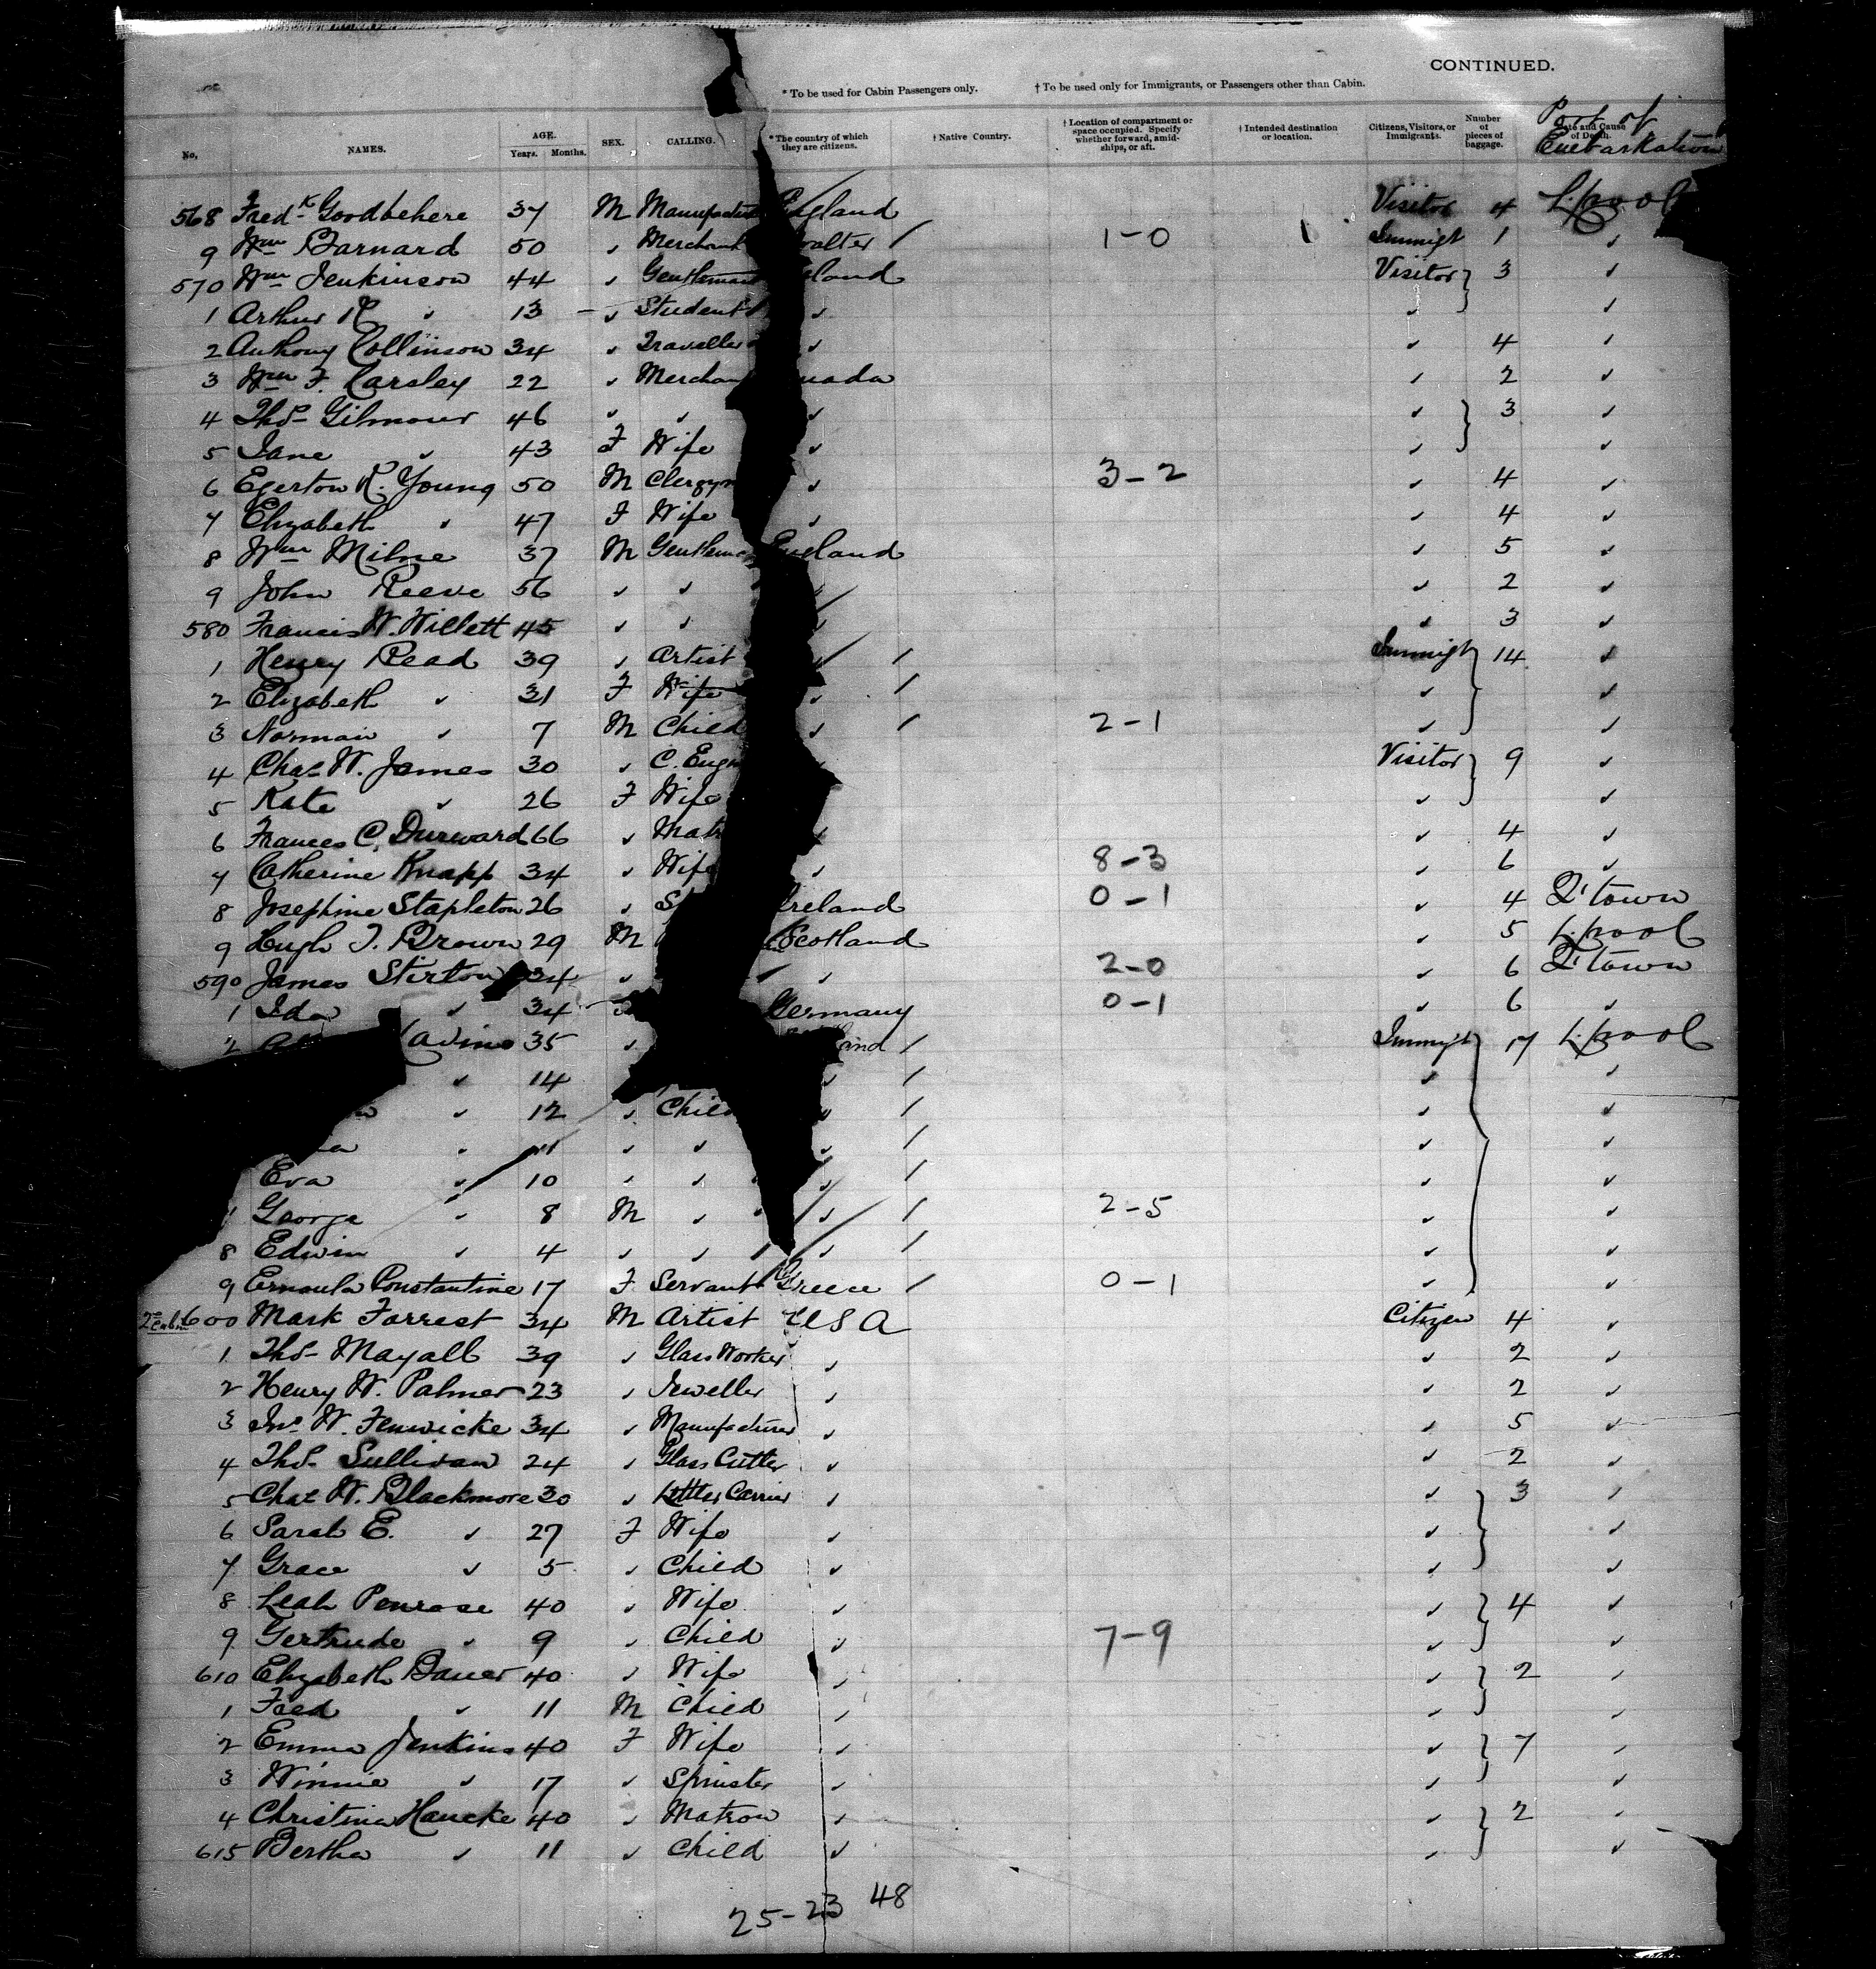 CONTINUED.
* To be used for Cabin Passengers only. † To be used only for Immigrants, or Passengers other than Cabin.
No. NAMES. AGE. Years. Months. SEX. CALLING. * The country of which they are citizens. † Native Country. † Location of compartment or space occupied. Specify whether forward, amidships, or aft. † Intended destination or location. Citizens, Visitors, or Immigrants. Number of pieces of baggage. Date and Cause of Death. Port of Embarkation
568 Fred.k Goodbehere 37 M Manufactu England Visitor 4 L'pool
9 Wm Barnard 50 " Merchant 1-0 Immigt 1 "
570 Wm Jenkinson 44 " Gentleman land Visitor 3 "
1 Arthur R " 13 " Student " " "
2 Anthony Collinson 34 " Traveller " " 4 "
3 Wm F. Carsley 22 " Merchan nada " 2 "
4 Thos Gilmour 46 " " " " 3 "
5 Jane " 43 F Wife " " "
6 Egerton R. Young 50 M Clergym " 3-2 " 4 "
7 Elizabeth " 47 F Wife " " 4 "
8 Wm Milne 37 M Gentlema England " 5 "
9 John Reeve 56 " " " 2 "
580 Francis W. Willett 45 " " " 3 "
1 Henry Read 39 " Artist " / Immigt 14 "
2 Elizabeth " 31 F Wife " / " "
3 Norman " 7 M Child " / 2-1 " "
4 Chas W. James 30 " C. Engr Visitor 9 "
5 Kate " 26 F Wife " "
6 Frances C. Durward 66 " Matr " 4 "
7 Catherine Knapp 34 " Wife " 8-3 " 6 "
8 Josephine Stapleton 26 " S Ireland 0-1 " 4 Q'town
9 Hugh T. Brown 29 M Scotland " 5 L'pool
590 James Stirton 34 " " 2-0 " 6 Q'town
1 Ida " 34 Germany 0-1 " 6 "
2 35 " / Immigt 17 L'pool
" 14 " / " "
" 12 " Child " / " "
" 11 " " " / " "
Eva " 10 " " " / " "
George " 8 M " " / 2-5 " "
8 Edwin " 4 " " " / " "
9 Ernoula Constantine 17 F Servant Greece / 0-1 " "
2nd Cabin 600 Mark Forrest 34 M Artist USA Citizen 4 "
1 Thos Mayall 39 " Glass Worker " " 2 "
2 Henry W. Palmer 23 " Jeweller " " 2 "
3 Jno W. Fenwicke 34 " Manufacturer " " 5 "
4 Thos Sullivan 24 " Glass Cutter " " 2 "
5 Chas W. Blackmore 30 " Letter Carrier " " 3 "
6 Sarah E. " 27 F Wife " " "
7 Grace " 5 " Child " " "
8 Leah Penrose 40 " Wife " " 4 "
9 Gertrude " 9 " Child " 7-9 " "
610 Elizabeth Bauer 40 " Wife " " 2 "
1 Fred " 11 M Child " " "
2 Emma Jenkins 40 F Wife " " 7 "
3 Winnie " 17 " Spinster " " "
4 Christina Hancke 40 " Matron " " 2 "
615 Bertha " 11 " Child " " "
25-23 48